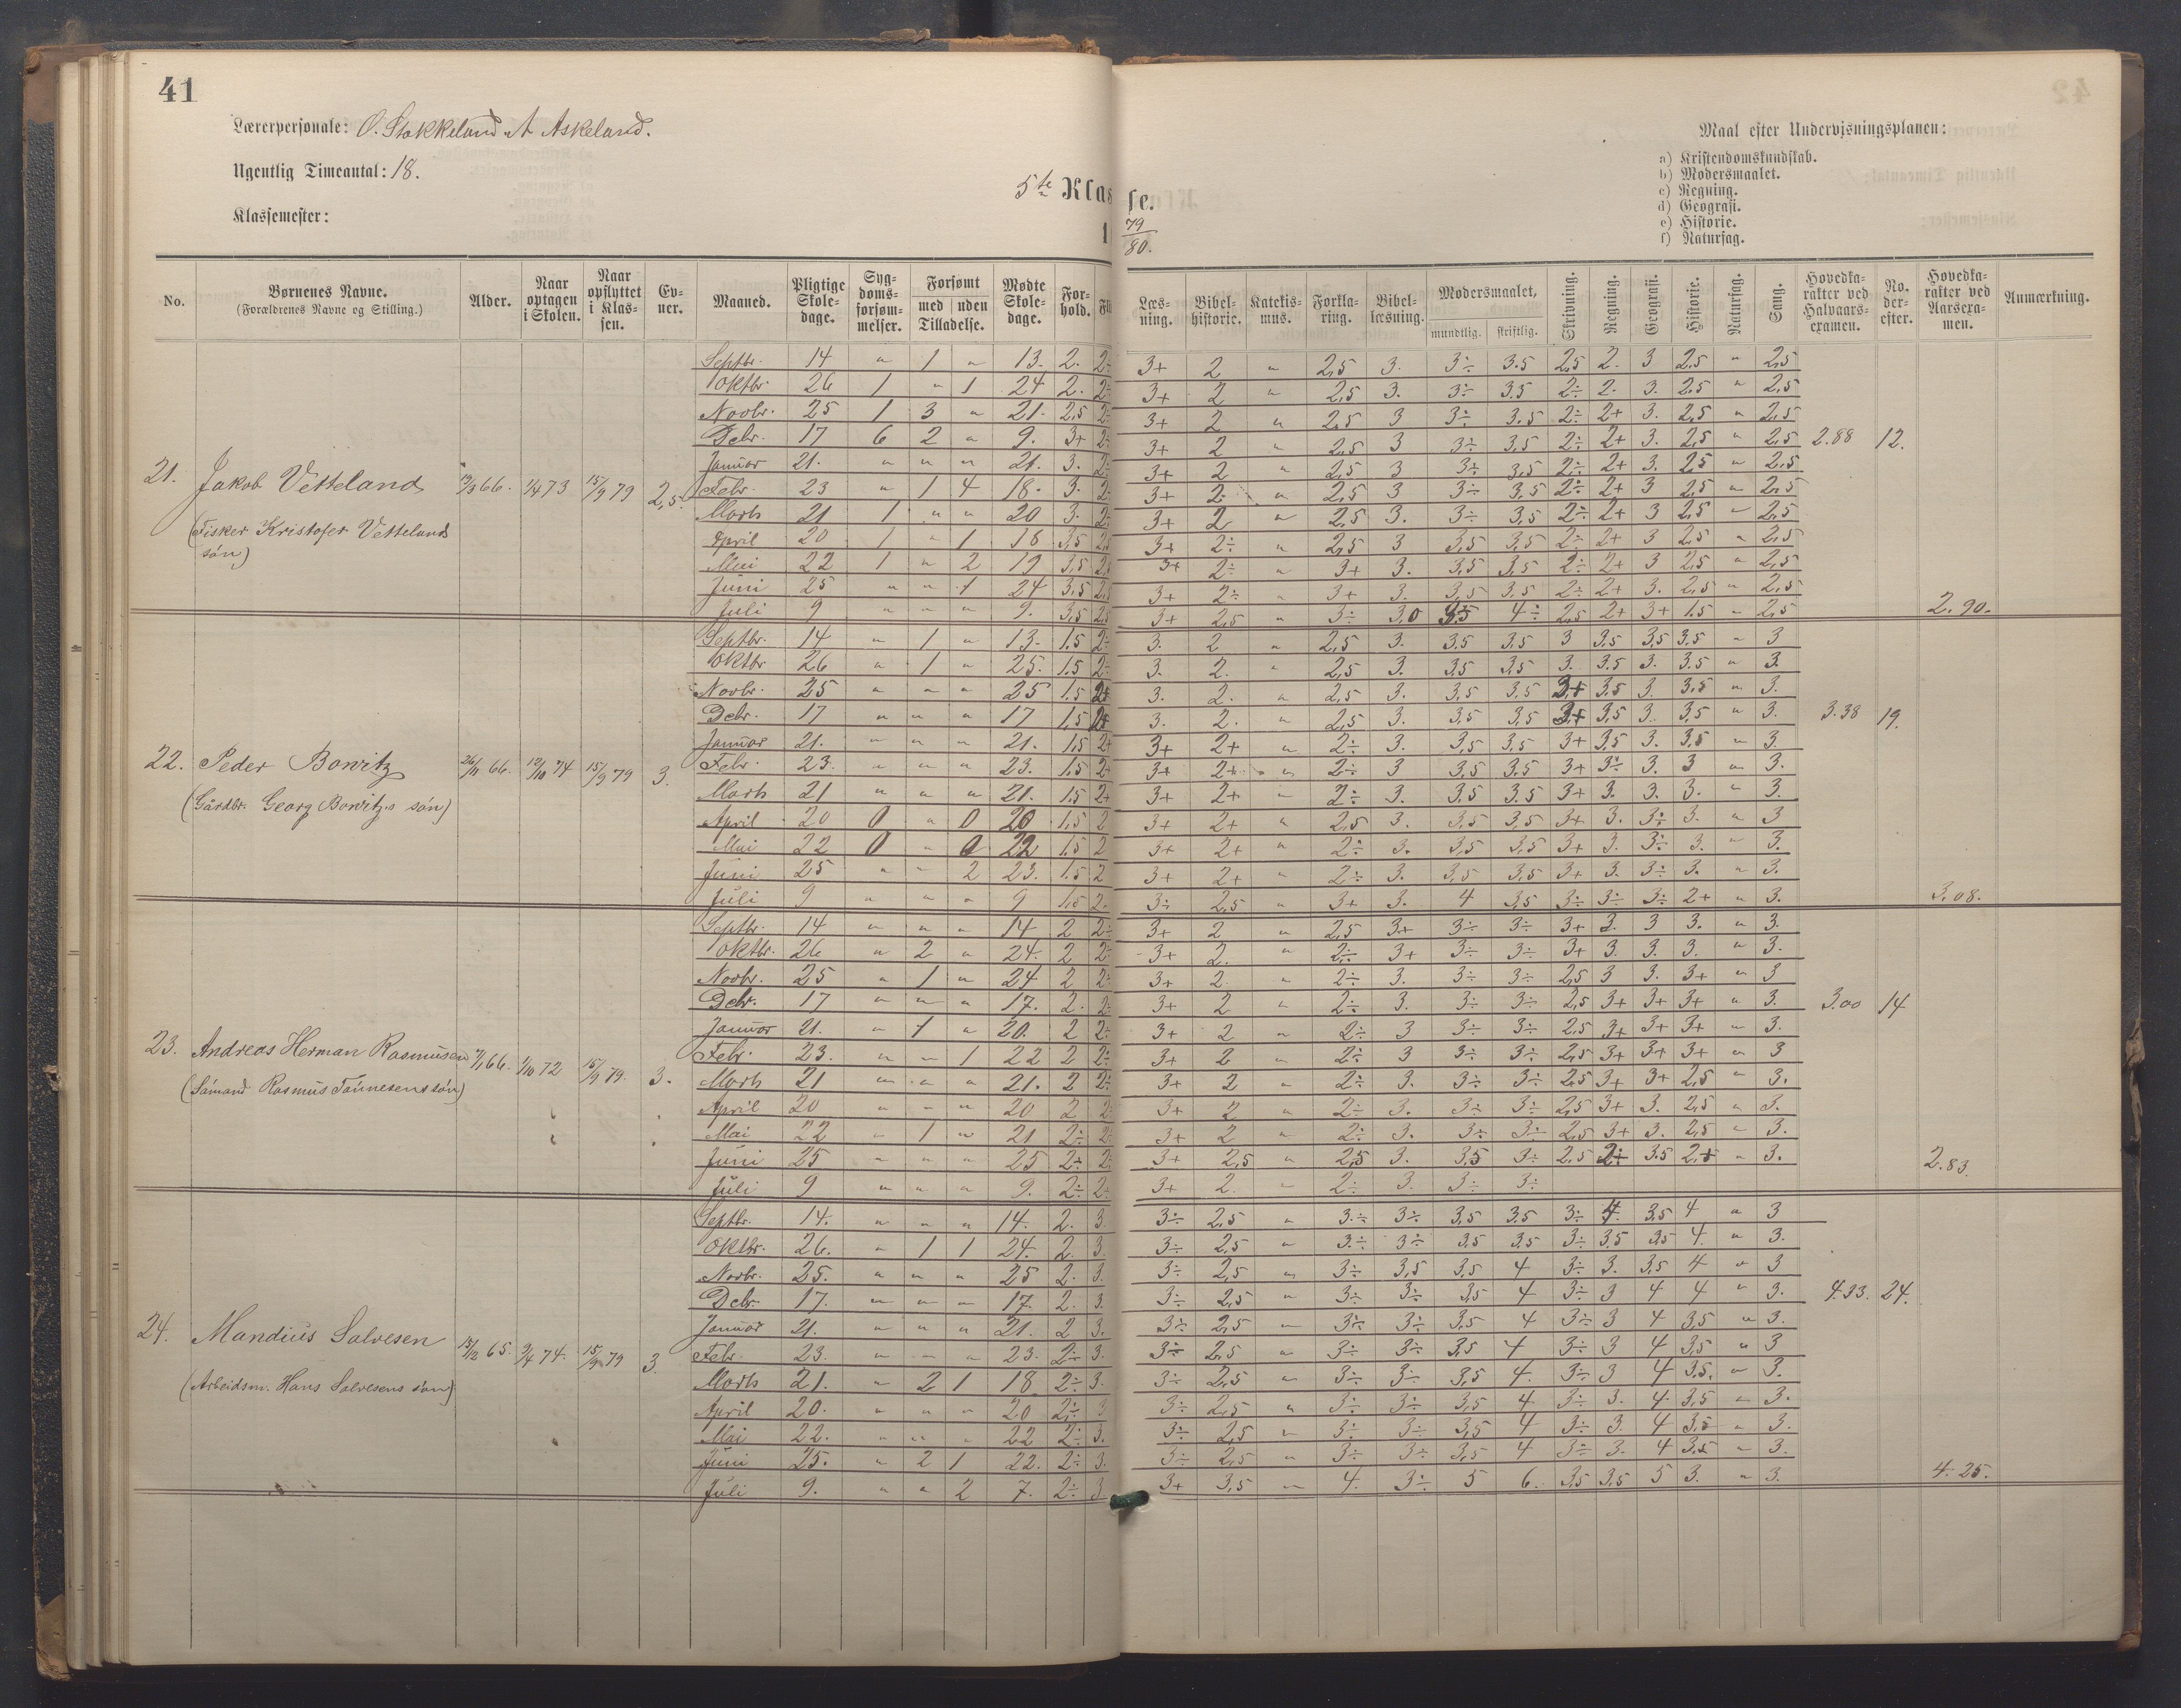 41
Lærerpersonale: O. Stokkeland. A Askeland.
Ugentlig Timeantal: 18.
Klassemester:
5te Klasse.
1 79/80.
Maal efter Undervisningsplanen:
a) Kristendomskundskab.
b) Modersmaalet.
c) Regning.
d) Geografi.
e) Historie.
f) Naturfag.
No. Børnenes Navne. (Forældrenes Navne og Stilling.) Alder. Naar optagen i Skolen. Naar opflyttet i Klassen. Evner. Maaned. Pligtige Skoledage. Sygdomsforsømmelser. Forsømt med uden Tilladelse. Mødte Skoledage. Forhold. Fli Læsning. Bibelhistorie. Katekismus. Forklaring. Bibellæsning. Modersmaalet, mundtlig. skriftlig. Skrivning. Regning. Geografi. Historie. Naturfag. Sang. Hovedkarakter ved Halvaarsexamen. No. derefter. Hovedkarakter ved Aarsexamen. Anmærkning.
Septbr. 14 " 1 " 13. 2. 2÷ 3+ 2 " 2,5 3. 3÷ 3.5 2,5 2. 3 2,5 " 2,5
Oktbr. 26 1 " 1 24 2. 2÷ 3+ 2 " 2,5 3. 3÷ 3,5 2÷ 2. 3. 2.5 " 2,5
Novbr. 25 1 3 " 21. 2,5 2÷ 3+ 2 " 2,5 3 3÷ 3.5 2÷ 2+ 3. 2,5 " 2,5
Debr. 17 6 2 " 9. 3+ 2÷ 3+ 2 " 2,5 3 3÷ 3,5 2÷ 2+ 3. 2,5 " 2,5 2.88 12.
Januar 21. " " " 21. 3. 2÷ 3+ 2 " 2,5 3 3÷ 3,5 2÷ 2+ 3. 2,5 " 2,5
21. Jakob Vetteland 19/3 66. 1/4 73 15/9 79 2,5. Febr. 23 " 1 4 18. 3. 2÷ 3+ 2. " 2,5 3 3÷ 3,5 2÷ 2+ 3 2,5 " 2,5
Marts 21 1 " " 20 3. 2÷ 3+ 2 " 2,5 3. 3÷ 3,5 2÷ 2+ 3 2,5 " 2,5
(Fisker Kristofer Vettelands
søn)
April 20 1 " 1 18 3,5 2,5 3+ 2÷ " 2,5 3 3,5 3,5 2÷ 2+ 3 2,5 " 2,5
Mai 22 1 " 2 19 3,5 2,5 3+ 2÷ " 3+ 3. 3,5 3,5 2÷ 2+ 3 2,5 " 2,5
Juni 25 " " 1 24 3,5 2,5 3+ 2÷ " 3+ 3. 3,5 3,5 2÷ 2+ 3. 2,5 " 2,5
Juli 9 " " " 9. 3,5 2,5 3+ 2,5 " 3÷ 3,0 3,5 4÷ 2,5 2+ 3+ 1.5 " 2,5 2.90.
Septbr. 14 " 1 " 13. 1.5 2÷ 3. 2 " 2,5 3. 3,5 3,5 3 3,5 3,5 3,5 " 3
Oktbr 26 " 1 " 25. 1.5 2÷ 3. 2. " 2,5 3. 3,5 3,5 3. 3.5 3. 3.5 " 3.
Novbr. 25 " " " 25 1.5 2+ 3. 2. " 2,5 3. 3,5 3,5 3+ 3,5 3. 3.5 " 3.
Debr. 17 " " " 17 1,5 2+ 3. 2. " 2,5 3. 3,5 3,5 3+ 3,5 3. 3,5 " 3. 3.38 19.
Januar 21. " " " 21. 1,5 2+ 3+ 2+ " 2÷ 3. 3,5 3,5 3+ 3,5 3. 3,5 " 3.
22. Peder Bowitz 26/11 66. 12/10 74 15/9 79 3. Febr. 23. " " " 23. 1.5 2+ 3+ 2+ " 2÷ 3 3,5 3.5 3+ 3÷ 3. 3 " 3.
(Gårdbr. Georg Bowitz.s søn)
Marts 21 " " " 21. 1.5 2+ 3+ 2+ " 2÷ 3. 3,5 3.5 3+ 3. 3. 3. " 3.
April 20 0 " 0 20 1,5 2 3+ 2+ " 2,5 3. 3,5 3,5 3+ 3. 3÷ 3. " 3
Mai 22 0 " 0 22 1.5 2 3+ 2+ " 2÷ 3. 3,5 3,5 3+ 3. 3÷ 3. " 3.
Juni 25 " " 2 23. 1.5 2 3+ 2+ " 2÷ 3. 3,5 3,5 3+ 3. 3÷ 3. " 3.
Juli 9 " " " 9 1,5 2. 3÷ 2,5 " 3+ 3. 4 3,5 3÷ 3÷ 3÷ 2+ " 3. 3,08.
Septbr. 14 " " " 14 2 2÷ 3+ 2 " 2,5 3+ 3÷ 3÷ 3+ 3. 3 3. " 3.
Oktbr. 26 " 2 " 24. 2 2÷ 3+ 2. " 2÷ 3+ 3÷ 3÷ 3+ 3. 3. 3. " 3.
Novbr. 25 " 1 " 24 2 2÷ 3+ 2 " 2÷ 3. 3÷ 3÷ 2,5 3 3. 3+ " 3
Debr. 17 " " " 17. 2. 2÷ 3+ 2 " 2÷ 3. 3÷ 3÷ 2,5 3+ 3+ 3+ " 3. 3.00 14
Januar 21. " 1 " 20. 2 2÷ 3+ 2 " 2÷ 3 3÷ 3÷ 2,5 3+ 3+ 3+ " 3.
23. Andreas Herman Rasmusen 7/1 66. 1/10 72 15/9 79. 3. Febr. 23. " " 1 22 2 2÷ 3+ 2 " 2÷ 3 3÷ 3÷ 2,5 3+ 3+ 3+ " 3
(Sømand Rasmus Tønnesens søn)
Marts 21 " " " 21. 2 2÷ 3+ 2 " 2÷ 3. 3÷ 3÷ 2,5 3+ 3+ 2,5 " 3.
April 20 " " " 20 2 2÷ 3+ 2 " 2÷ 3. 3÷ 3÷ 2,5 3+ 3. 2,5 " 3.
Mai 22 " 1 " 21 2÷ 2÷ 3+ 2 " 2÷ 3. 3÷ 3÷ 2,5 3+ 3. 2,5 " 3.
Juni 25 " " " 25 2÷ 2÷ 3+ 2,5 " 2,5 3. 3,5 3÷ 2,5 2÷ 3.5 2,5 " 3. 2.83.
Juli 9 " " " 9. 2÷ 2÷ 3+ 2. " 2÷ 3. 3÷ 3÷
Septbr. 14. " " " 14. 2. 3. 3÷ 2,5 " 3÷ 3÷ 3,5 3,5 3÷ 4. 3,5 4 " 3
Oktbr. 26. " 1 1 24. 2. 3. 3÷ 2,5 " 3÷ 3÷ 3,5 3,5 3÷ 3,5 3,5 4. " 3.
Novbr. 25. " " " 25 2. 3. 3÷ 2,5 " 3÷ 3,5 3,5 4 3÷ 3. 3,5 4 " 3
Debr. 17. " " " 17. 2. 3. 3÷ 2,5 " 3÷ 3÷ 3,5 4 3÷ 3 4 4 " 3. 4.33. 24.
Januar 21. " " " 21. 2 3. 3÷ 2,5 " 3÷ 3÷ 3,5 4 3÷ 3 4 3,5 " 3.
24. Mandius Salvesen 17/12 65. 9/4 74. 15/9 79 3. Febr. 23. " " " 23. 2÷ 3. 3÷ 2,5 " 3÷ 3÷ 3,5 4 3÷ 3 4 3,5 " 3
(Arbeidsm. Hans Salvesens søn)
Marts 21. " 2 1 18 2÷ 3. 3÷ 2,5 " 3÷ 3÷ 3,5 4. 3÷ 3 4 3,5. " 3.
April 20. " " " 20 2÷ 3 3÷ 2,5 " 3÷ 3÷ 3,5 4 3÷ 3. 4. 3,5 " 3.
Mai 22. " " " 22 2÷ 3. 3÷ 2,5 " 3÷ 3÷ 3,5 4 3÷ 3. 4 3,5 " 3.
Juni 25. " 2 1 22. 2÷ 3. 3÷ 2,5 " 3÷ 3÷ 3,5 4 3÷ 3. 4 3,5 " 3.
Juli 9. " " 2 7. 2÷ 3. 3+ 3,5 " 4. 3÷ 5 6. 3,5 3,5 5 3. " 3. 4.25.